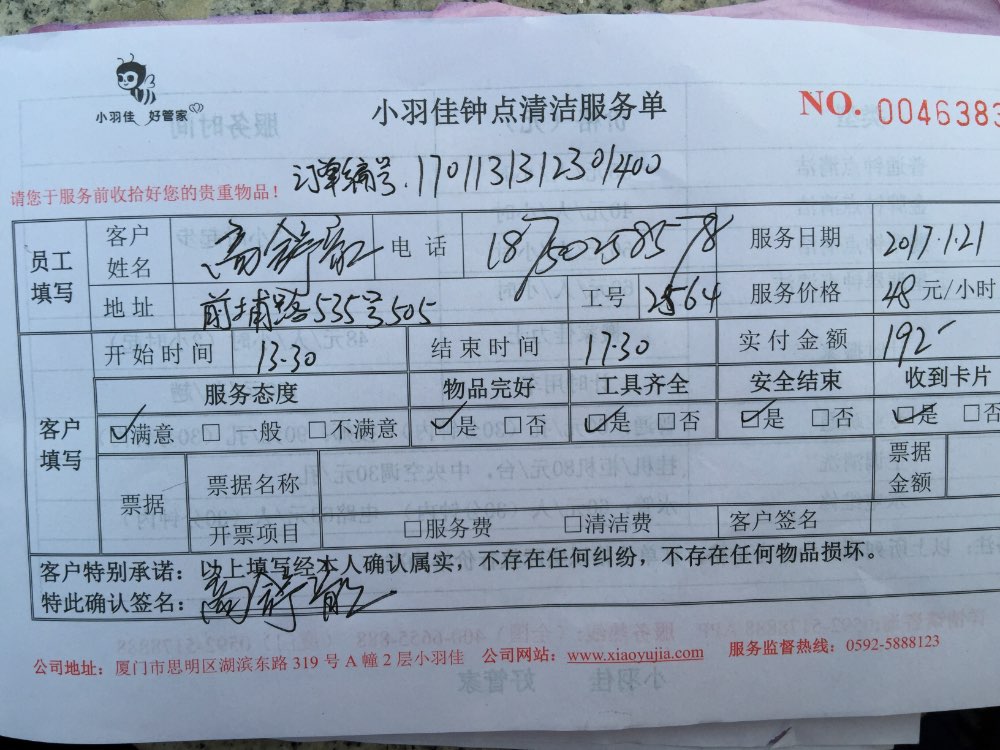 小羽佳 好管家
小羽佳钟点清洁服务单
NO. 0046383
订单编号.1701131312301400
请您于服务前收拾好您的贵重物品！
员工填写 客户姓名 高 电话 18750258578 服务日期 2017.1.21
地址 前埔路535号505 工号 2564 服务价格 48 元/小时
客户填写 开始时间 13.30 结束时间 17.30 实付金额 192
服务态度 物品完好 工具齐全 安全结束 收到卡片
☑满意 □一般 □不满意 ☑是 □否 ☑是 □否 ☑是 □否 ☑是 □否
票据 票据名称 票据金额
开票项目 □服务费 □清洁费 客户签名
客户特别承诺：以上填写经本人确认属实，不存在任何纠纷，不存在任何物品损坏。
特此确认签名：高
公司地址：厦门市思明区湖滨东路 319 号 A 幢 2 层小羽佳 公司网站：www.xiaoyujia.com 服务监督热线：0592-5888123